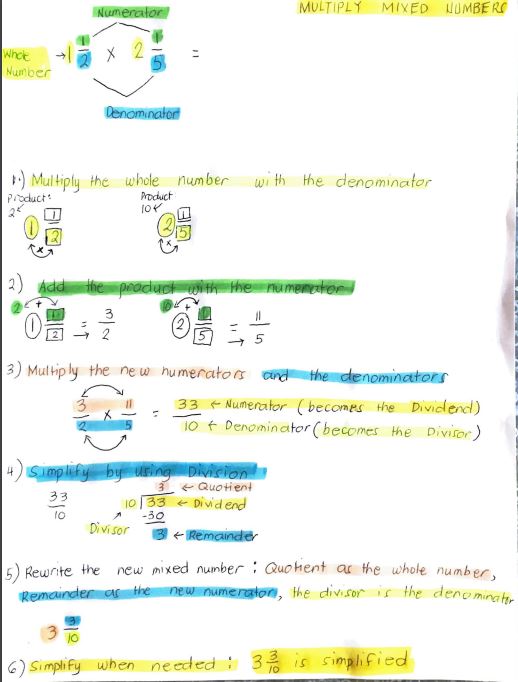 MULTIPLY MIXED NUMBERS
Numerator
Whole Number → 1 1/2 × 2 1/5 =
Denominator
1.) Multiply the whole number with the denominator
Product: 2 Product 10
1 1/2 2 1/5
×  ×
2) Add the product with the numerator
2 + 10 +
1 1/2 = → 3/2 2 1/5 = → 11/5
3) Multiply the new numerators and the denominators
3/2 × 11/5 = 33 ← Numerator (becomes the Dividend)
10 ← Denominator (becomes the Divisor)
4) Simplify by using Division
3 ← Quotient
33/10 10 33 ← Dividend
-30
Divisor
3 ← Remainder
5) Rewrite the new mixed number : Quotient as the whole number,
Remainder as the new numerator, the divisor is the denominator
3 3/10
6) Simplify when needed : 3 3/10 is simplified